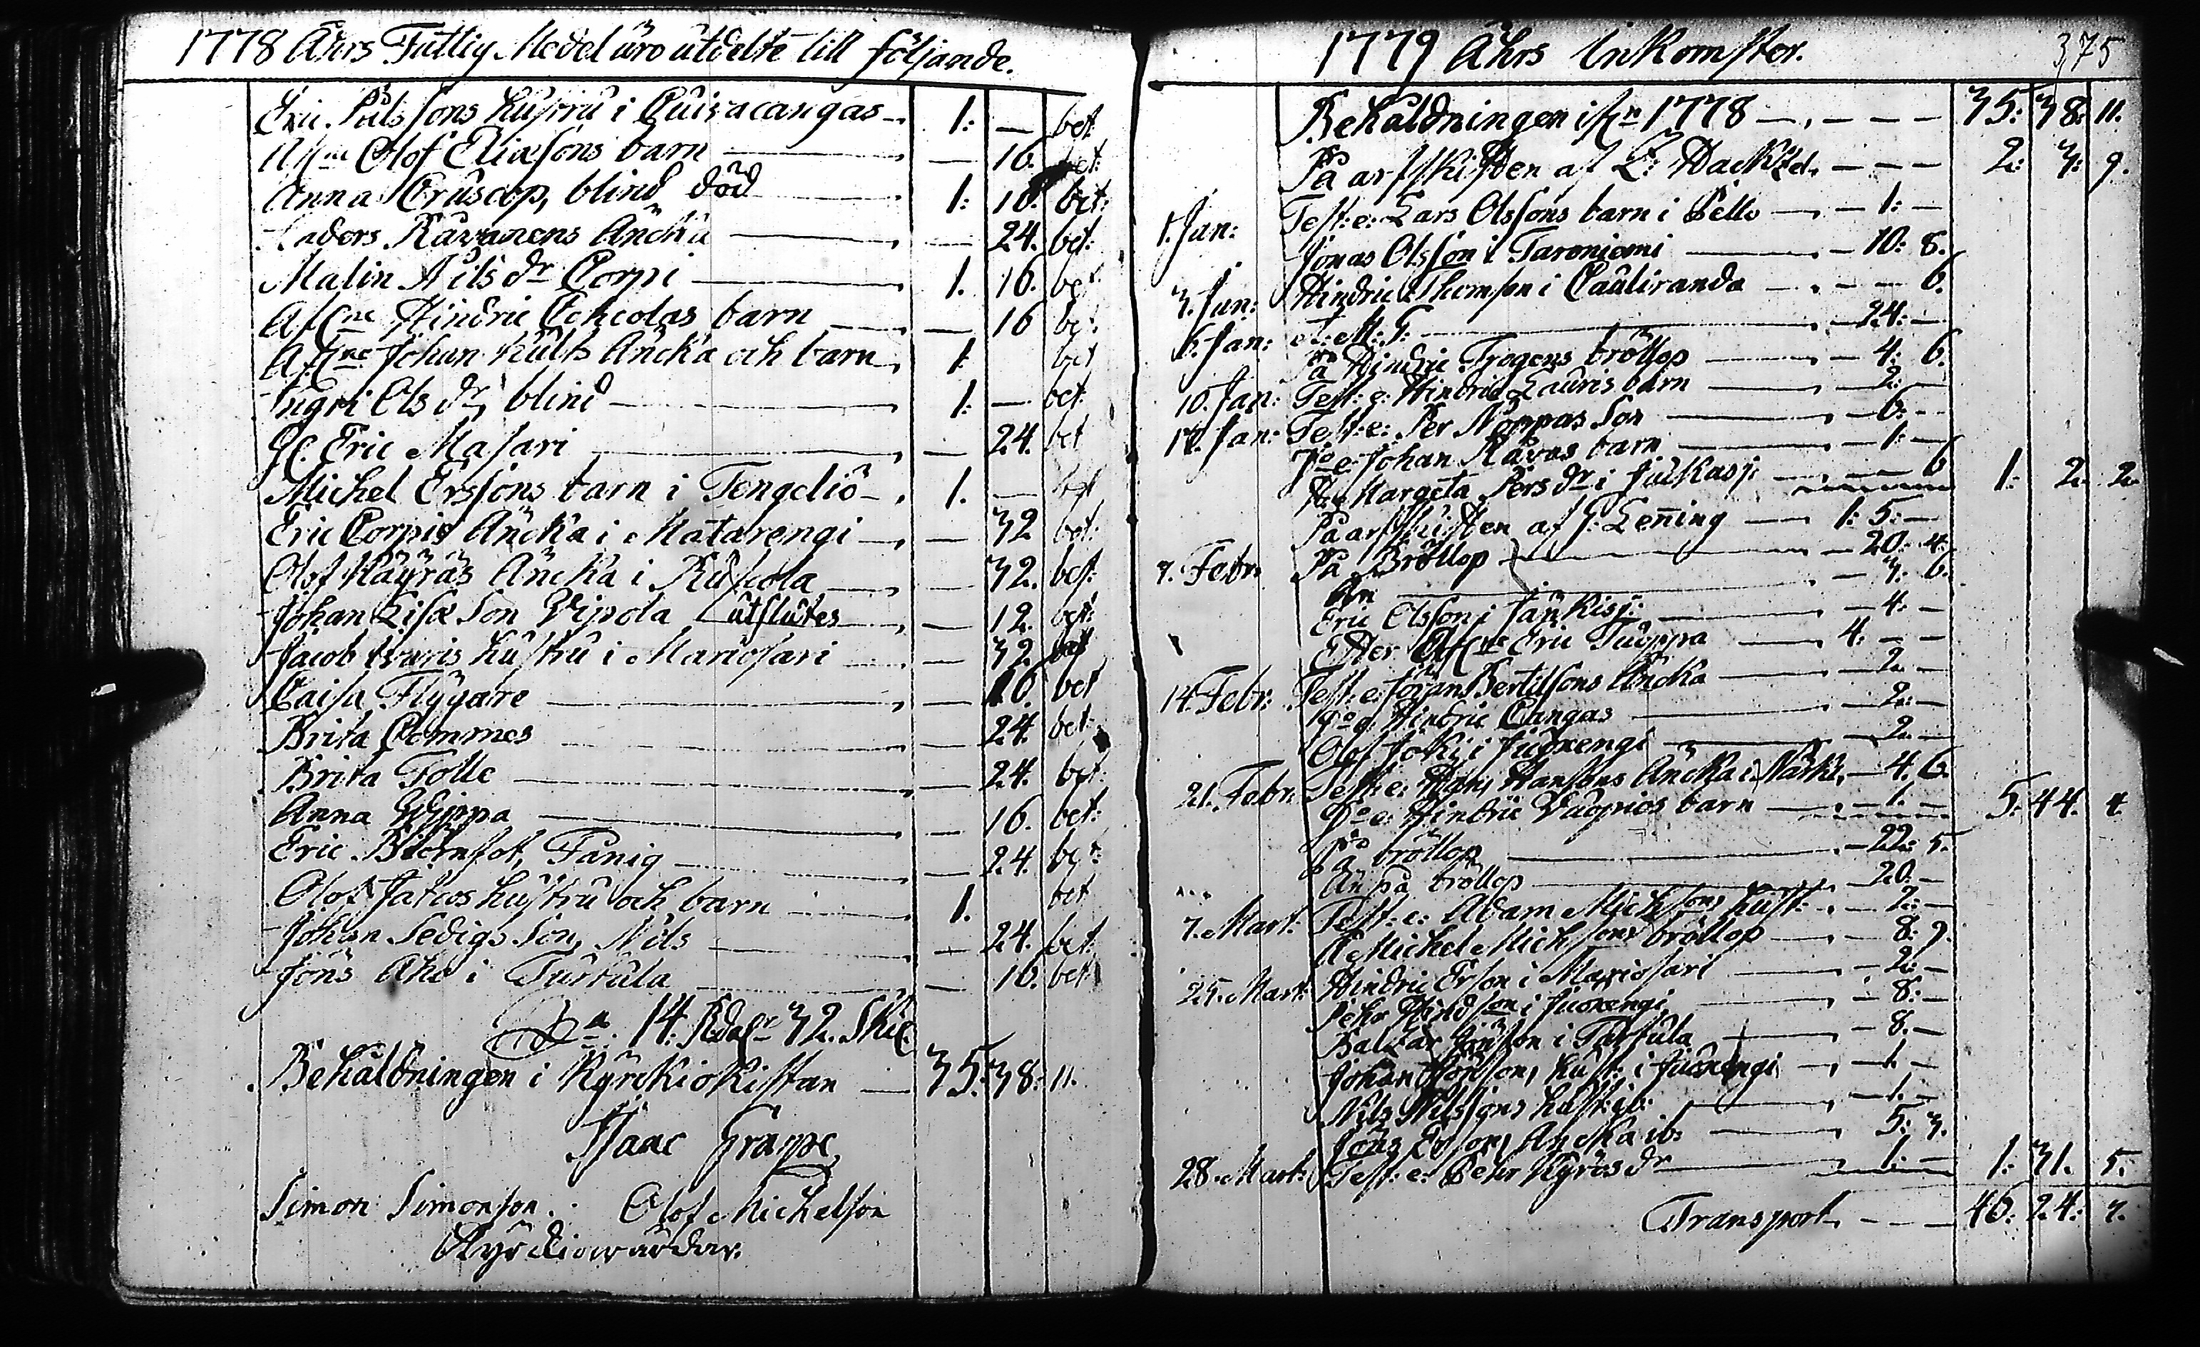 1778 Åhrs Fattig Medel äro utdelte till följande.
Eric Påls sons hustru i Cuivacangas 1: — bet
Olof Erixsons barn — 16. bet:
Anna Cruscop, blind död 1: 16. bet:
Anders Rävanens Äncka — 24. bet:
Malin Nils dr Corpi 1. 16. bet
Afl:ne Hindric barn — 16 bet:
Afl:ne Johan Hults Äncka och barn 1. bet
Ingri Ols dr blind 1: — bet
Eric Masari — 24. bet
Michel Ersons barn i Tengeliö 1. — bet
Eric Corpis Äncka i Matarengi — 32 bet.
Olof Häyräs Äncka i — 32. bet:
Johan son Vipola utslutes — 12. bet:
Jacob hustru i Mariosari — 32. bet
Caisa Flygare — 16. bet
Brita Pommes — 24. bet:
Brita Tolle — 24. bet:
Anna Wippa — 16. bet:
Eric Biörnfot, Fänig — 24. bet:
Olof Jatcos hustru och barn 1. bet
Johan Sedigs Son, Nils — 24. bet:
Jöns Aho i Turtula — 16. bet:
S:a 14. Rdal:r 32. Skil:
Behåldningen i Kyrckiokistan — 35: 38: 11.
Isaac Grape,
Simon Simonson. Olof Michelson
Kyrckiowärdar.
1779 Åhrs Inkomster. 375
Behåldningen ifrn 1778 — 35: 38: 11.
På arfskiften af L: — 2: 3: 9.
1. Jan: Test: e: Lars Olssons barn i Pello — 1: —
Jonas Olsson i Taroniemi — 10: 8.
3. Jan: Hindric Thomson i Cauliranda — 6.
6. Jan: — 24: —
På Hindric Frogens bröllop — 4: 6.
10. Jan: Test: e: Hindric Lauris barn — 2: —
17. Jan: Test: e: Per Noppas Son — 6: —
D:o e: Johan Rävas barn — 1: —
Margeta Pers dr i — 6 1: 2. 2.
På arfskiften af J: Lening — 1: 5: —
7. Febr: På Bröllop — 20: 4.
An — 3. 6.
Eric Olsson i — 4: —
Efter Afl:ne Eric Tuippa — 4: —
14. Febr: Test: e: Jöran Bertilsons Äncka — 2. —
D:o e: Hindric Cangas — 2: —
Olof i Juoxengi — 2. —
21. Febr: Test: e: Hans Hansons Äncka i — 4. 6.
D:o e: Hindric barn — 1. — 5: 44. 4
På bröllop — 22: 5.
Än på bröllop — 20. —
7. Mart: Test: e: Adam Michsons hust: — 2: —
Michel Michsons bröllop — 8: 9.
25. Mart: Hindric Erson i Mariosari — 2: —
Pehr Hindson i Juoxengi — 8: —
i Turtula — 8. —
Johan hust: i Juoxengi — 1. —
Nils Nilssons hust: ib: — 1. —
Jöns Ersons Äncka ib: — 5: 3.
28. Mart: Test: e: Pehr dr — 1: — 1: 31. 5.
Transport — 46: 24: 7.